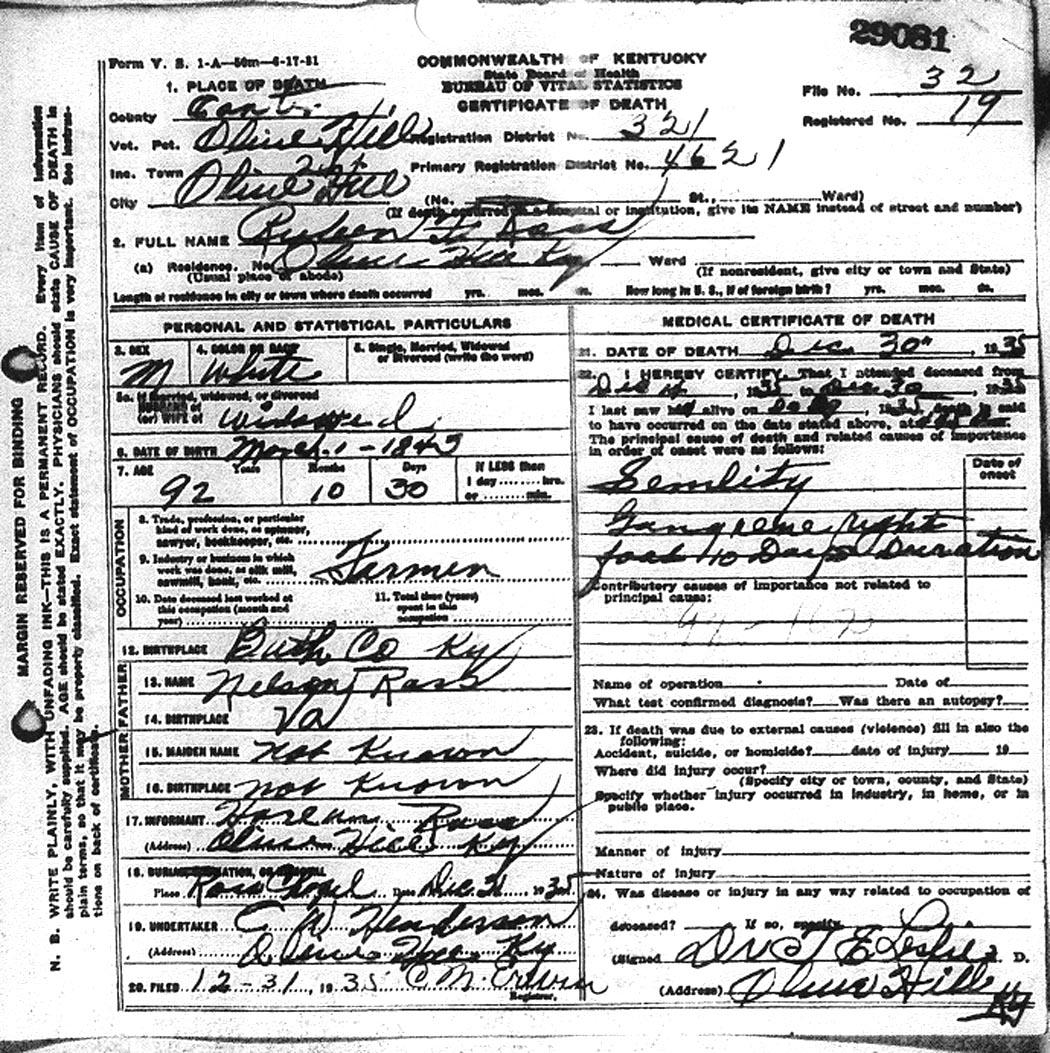 29081
Form V. S. 1-A—50m—6-17-31
COMMONWEALTH OF KENTUCKY
State Board of Health
BUREAU OF VITAL STATISTICS
CERTIFICATE OF DEATH
File No. 32
Registered No. 19
1. PLACE OF DEATH
County
Vot. Pct. Olive Hill Registration District No. 321
Inc. Town Primary Registration District No. 4621
City Olive Hill (No. St., Ward)
(If death occurred in a hospital or institution, give its NAME instead of street and number)
2. FULL NAME Ruben
(a) Residence. No. Olive Hill Ky Ward
(Usual place of abode) (If nonresident, give city or town and State)
Length of residence in city or town where death occurred yrs. mos. ds. How long in U. S., if of foreign birth? yrs. mos. ds.
PERSONAL AND STATISTICAL PARTICULARS
3. SEX 4. COLOR OR RACE 5. Single, Married, Widowed
or Divorced (write the word)
M White
5a. If married, widowed, or divorced
HUSBAND of
(or) WIFE of Widowed
6. DATE OF BIRTH March 1 - 1843
7. AGE Years Months Days If LESS than
1 day ........ hrs.
or ........ min.
92 10 30
OCCUPATION
8. Trade, profession, or particular
kind of work done, as spinner,
sawyer, bookkeeper, etc.
9. Industry or business in which
work was done, as silk mill,
sawmill, bank, etc. Farmer
10. Date deceased last worked at
this occupation (month and
year)
11. Total time (years)
spent in this
occupation
12. BIRTHPLACE Bath Co Ky
FATHER
13. NAME Nelson Ross
14. BIRTHPLACE Va
MOTHER
15. MAIDEN NAME not Known
16. BIRTHPLACE not Known
17. INFORMANT Ross
(Address) Olive Hill Ky
18. BURIAL, CREMATION, OR REMOVAL
Place Ross Chapel Date Dec. 31 1935
19. UNDERTAKER C W Henderson
(Address) Olive Hill Ky
20. FILED 12-31, 1935 C M. Erwin
Registrar.
MEDICAL CERTIFICATE OF DEATH
21. DATE OF DEATH Dec. 30", 1935
22. I HEREBY CERTIFY, That I attended deceased from
Dec 14, 1935 to Dec 30, 1935
I last saw him alive on, 1935, death is said
to have occurred on the date stated above, at
The principal cause of death and related causes of importance
in order of onset were as follows:
Date of
onset
Senility
Gangrene right
foot 10 Days Duration
Contributory causes of importance not related to
principal cause:
Name of operation Date of
What test confirmed diagnosis? Was there an autopsy?
23. If death was due to external causes (violence) fill in also the
following:
Accident, suicide, or homicide? date of injury 19
Where did injury occur?
(Specify city or town, county, and State)
Specify whether injury occurred in industry, in home, or in
public place.
Manner of injury
Nature of injury
24. Was disease or injury in any way related to occupation of
deceased? If so, specify
(Signed Dr J E Leslie D.
(Address) Olive Hill Ky
MARGIN RESERVED FOR BINDING
N. B. WRITE PLAINLY, WITH UNFADING INK—THIS IS A PERMANENT RECORD. Every item of information
should be carefully supplied. AGE should be stated EXACTLY. PHYSICIANS should state CAUSE OF DEATH in
plain terms, so that it may be properly classified. Exact statement of OCCUPATION is very important. See instruc-
tions on back of certificate.